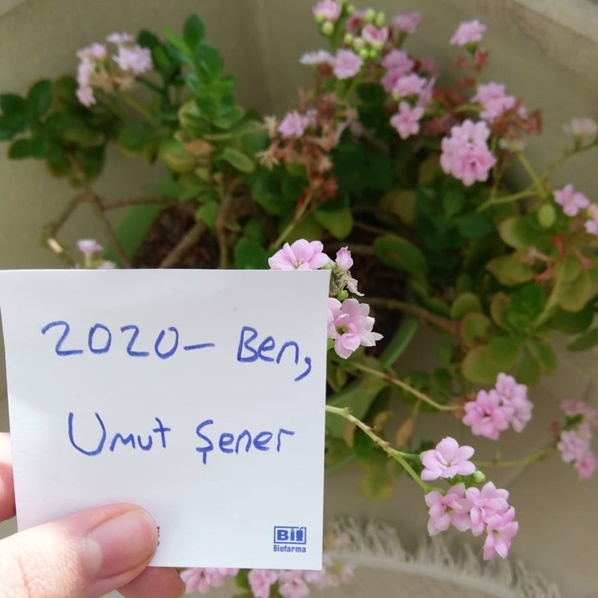 2020- Ben,
Umut Şener
Bif
Biofarma